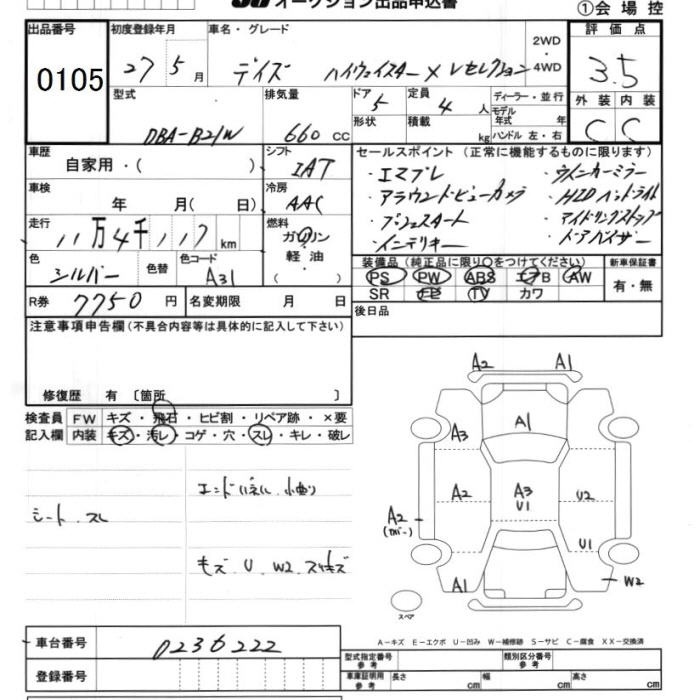 オークション出品申込書
①会場控
出品番号 初度登録年月 車名・グレード 2WD・4WD 評価点
0105 27 5月 デイズ ハイウェイスター X Vセレクション 3.5
型式 排気量 ドア 定員 ディーラー・並行 外装 内装
DBA-B21W 660 CC 5 4 人 モデル年式 年 C C
形状 積載 kg ハンドル 左・右
車歴 シフト セールスポイント (正常に機能するものに限ります)
自家用・( ) IAT ・エマブレ ・ウィンカーミラー
車検 冷房 ・アラウンドビューカメラ ・HIDヘッドライト
年 月( 日) AAC ・プッシュスタート ・アイドリングストップ
走行 燃料 ・インテリキー ・ドアバイザー
11万4千117km ガソリン・軽油・( )
色 色替 色コード 装備品 (純正品に限り○をつけてください) 新車保証書
シルバー A31 PS PW ABS エアB AW 有・無
SR ナビ TV カワ
R券 7750 円 名変期限 月 日 後日品
注意事項申告欄(不具合内容等は具体的に記入して下さい)
修復歴 有 〔箇所 〕
検査員 FW キズ・飛石・ヒビ割・リペア跡・×要
記入欄 内装 キズ・汚レ・コゲ・穴・スレ・キレ・破レ
小曲り
シート スレ
キズ U W2 スリキズ
A2 A1
A3 A1
A2 A3 U1 U2
A2
U1
A1 W2
スペア
A-キズ E-エクボ U-凹み W-補修跡 S-サビ C-腐食 XX-交換済
車台番号 0236222
型式指定番号 参考 類別区分番号 参考
登録番号 車庫証明用 参考 長さ cm 幅 cm 高さ cm